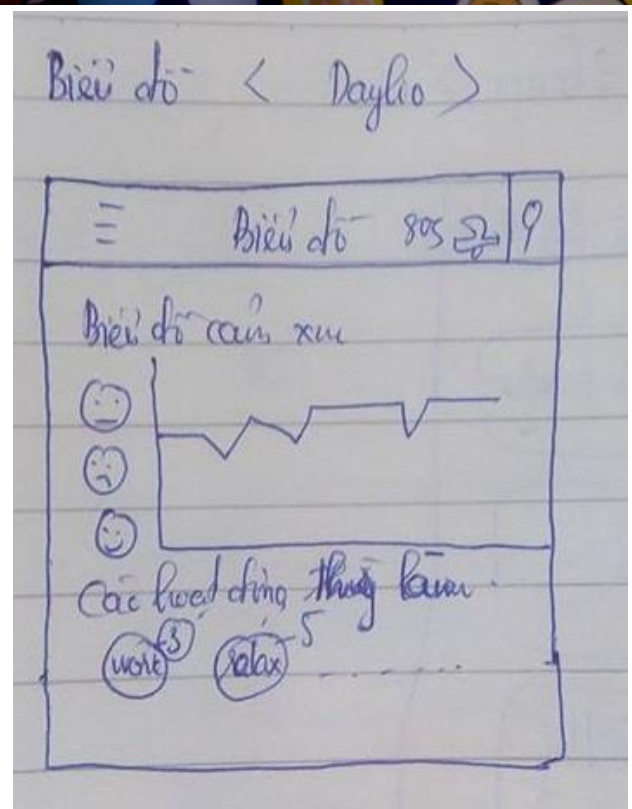 Biểu đồ < Daylio >
Biểu đồ
Biểu đồ cảm xúc
Các hoạt động thường làm
work 3 relax 5 .........